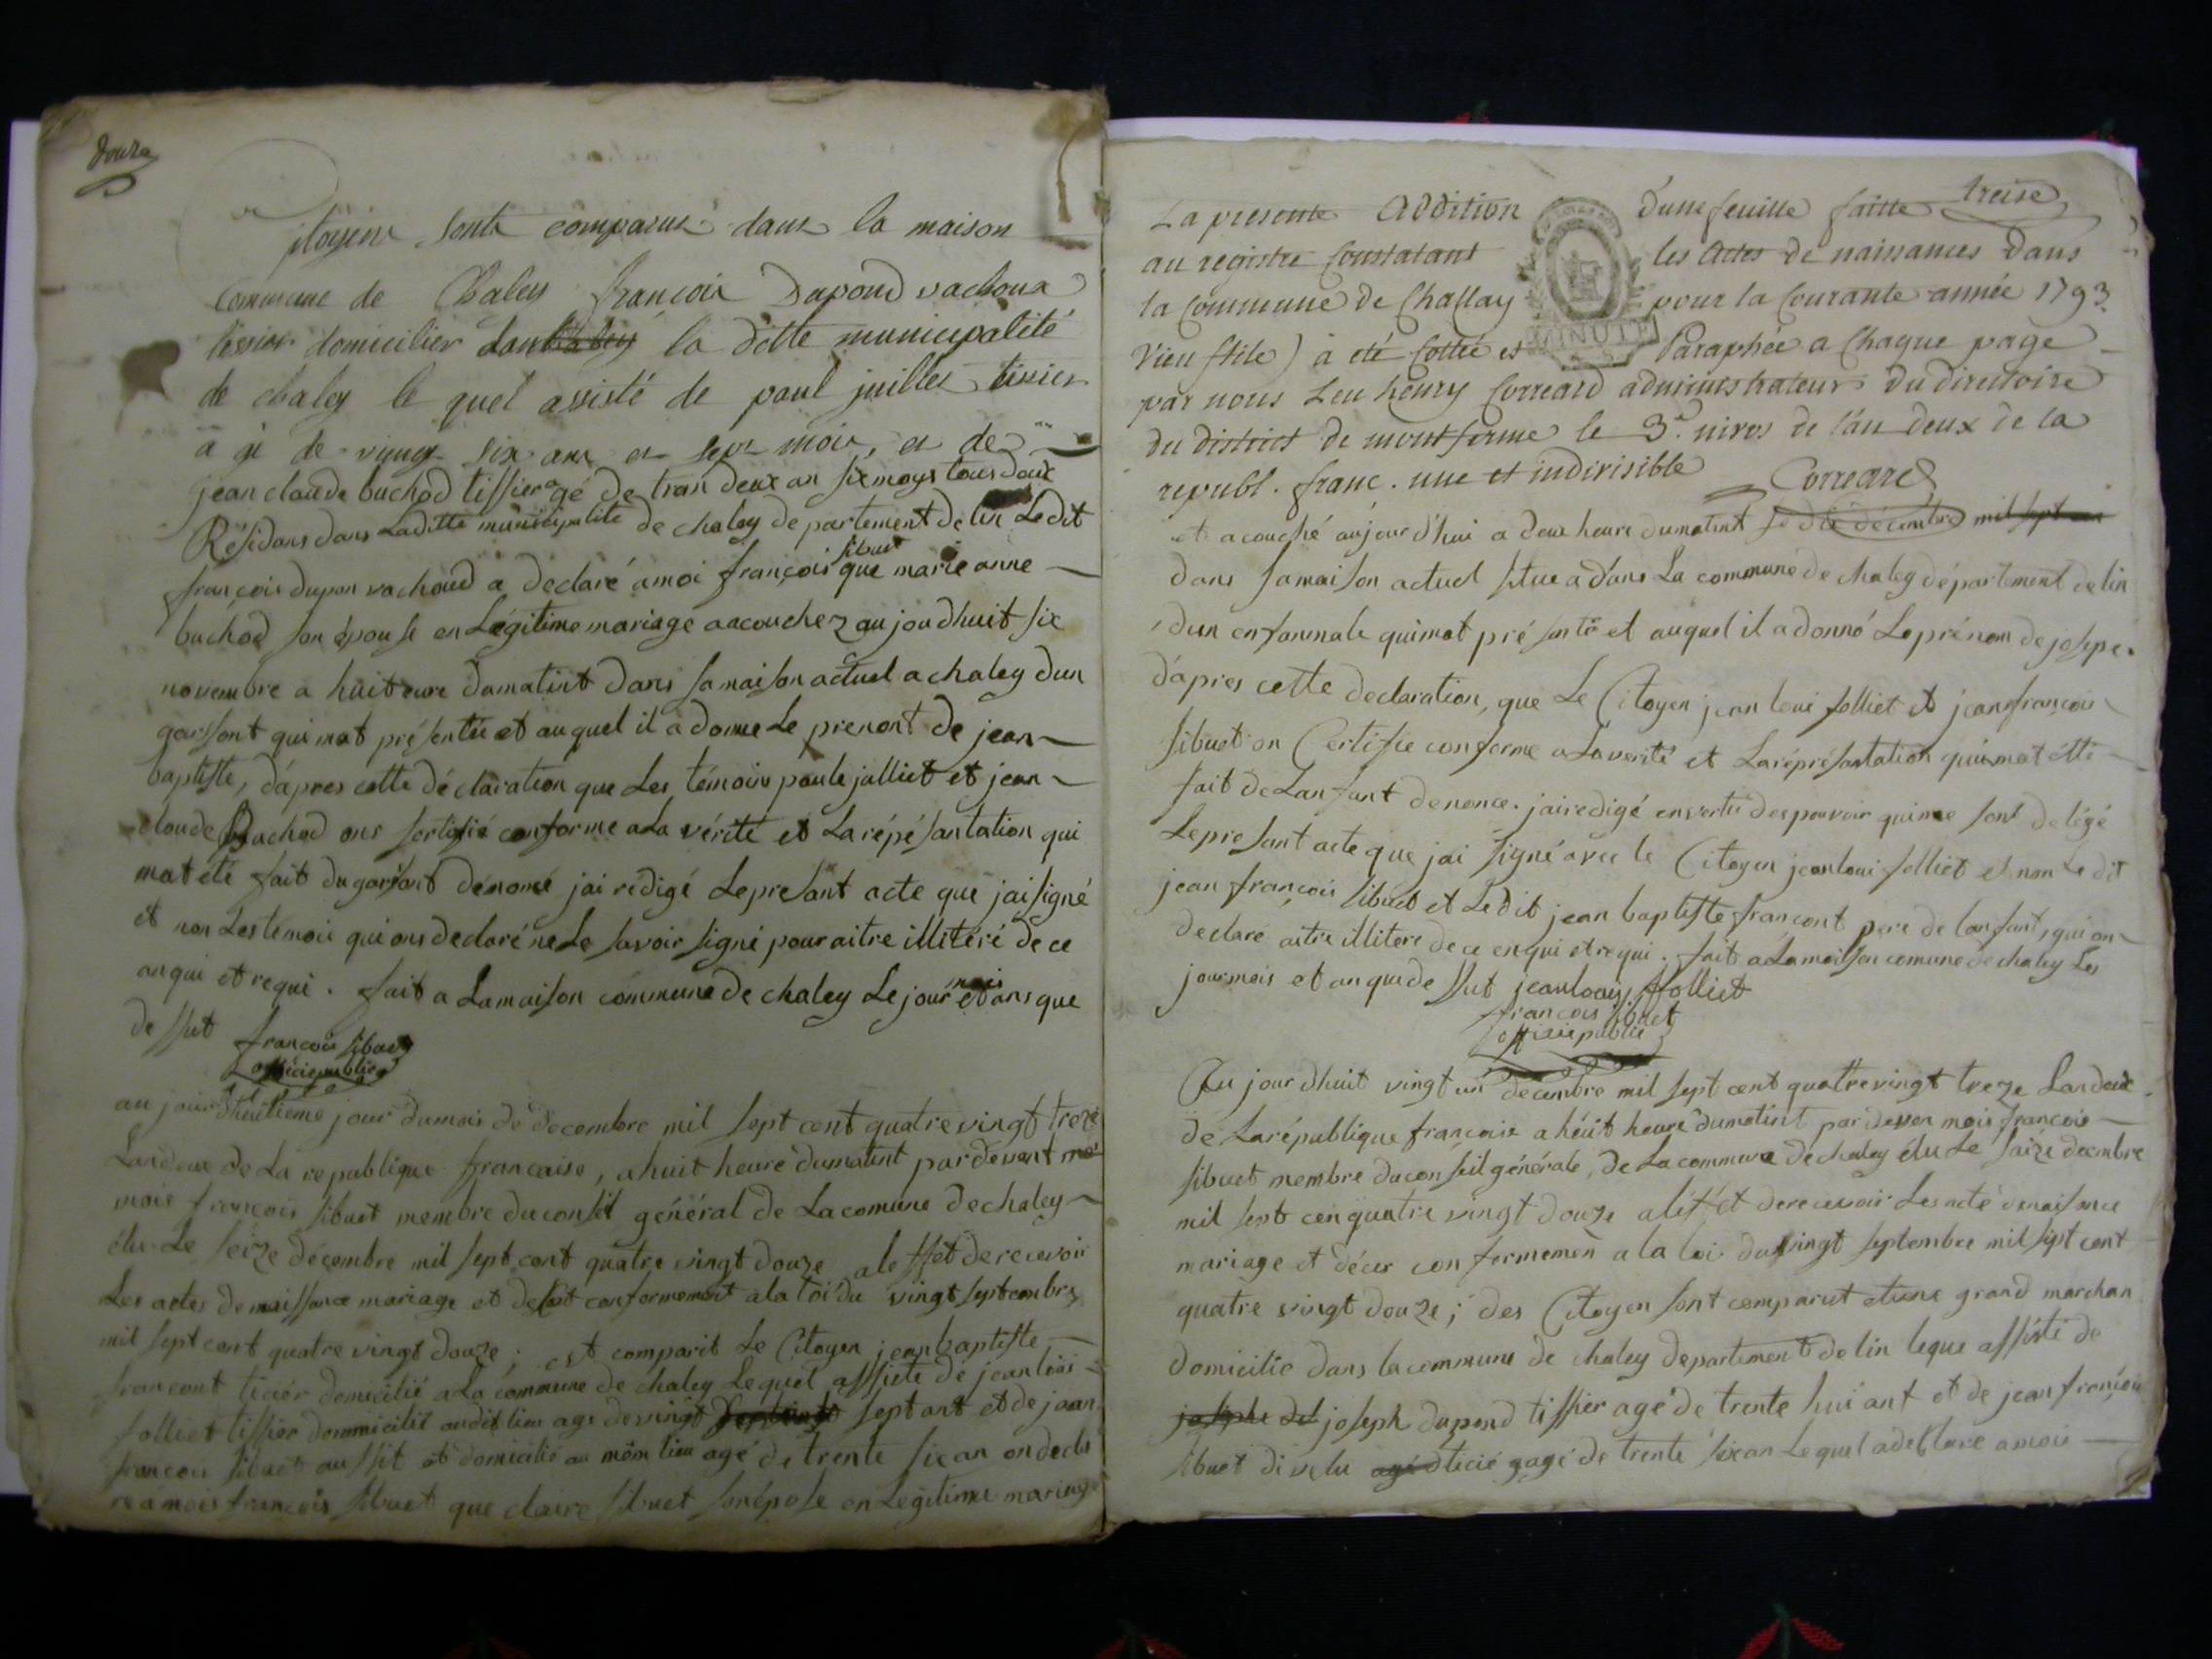 douze
itoyens sonts comparus dans la maison
Commune de Chaley françois Dupond vachoux
tissier domicilier la ditte municipalité
de chaley le quel assisté de paul juillet tissier
a gé de vingt six ans et sept mois, et de
jean claude buchod tissier agé de tran deux an six moys tous deux
Résidans dans Laditte municipalité de chaley departement de lin Ledit
françois dupon vachoud a declaré amoi françois sibuet que marie anne
buchod son épouse en Légitime mariage a acouchez au jourdhuit six
novembre a huit eure dumatint dans samaison actuel a chaley dun
garssont qui mat présentée et auquel il a donné Le prenont de jean
baptiste, dápres cette déclaration que Les témoins paule julliet et jean
claude Buchod ons sertifié conforme a La vérité et La répésantation qui
mat été fait du garssont dénomé jai rédigé Le presant acte que jai signé
et non Les temoin qui ons declaré ne Le savoir signé pour aitre illitéré de ce
anqui et requi. fait a Lamaison commune de chaley Le jour mois et ans que
de ssut françois sibuet
officiepublic
au jourdhuitieme jour dumois de decembre mil sept cent quatre vingt treze
Landeux de La republique francaise, a huit heure dumatint pardevant
mois françois sibuet membre du conseil général de La comune de chaley
élu Le seize décembre mil sept cent quatre vingt douze a le ffet de recevoir
Les actes de naissance mariage et conformement a la loi du vingt septembre
mil sept cent quatre vingt douze; est comparit Le Citoyen jean baptiste
françont ticier domicilié a La commune de chaley Le quel assisté de jean loui
folliet tissier dommicilié audit lieu agé de vingt sept ant et de jean
françois sibuet aussit et domicilié au mêm lieu agé de trente six an on decla
re a mois françois sibuet que claire sibuet sonépose en Legitime mariage
treise
La presente Addition d'une feuille faitte
au registre Constatant les Actes de naissances dans
la Commune de Challay pour la Courante année 1793
vieu stile) à eté Cottée et Paraphée a Chaque page
MINUTE
par nous Leu henry Correard administrateur du directoire
du district de montferme le 3e. nivos de l'an deux de la
republ. franc. une et indivisible Correard
et acouché aujour d'hui a deux heure dumatint decembre mil sept
dans samaison actuel situe a dans La commune de chaley département de lin
dun enfanmale quimat présanté et auquel il a donné Leprénom de josepe.
d'apres cette declaration, que Le Citoyen jean loui folliet et jean françois
sibuet on Certifie conforme a La verité et La réprésantation quimat étté
fait de Lanfant denonce. jairedigé envertu despouvoir quime sont delégé
Lepresant acte que jai signé avec le Citoyen jeanloui folliet et non Le dit
jean françois sibuet et Le dit jean baptiste françont pere de lanfant, qui on
declare aitre illitere de ce enqui et requi. fait a Lamaison comune de chaley Les
jour mois et anquede ssut jeanlouis folliet
françois sibuet
officiepublic
Au jourdhuit vingt un decembre mil sept cent quatre vingt treze Landeux
de La république françoise a héuit heure dumatint par devan mois françois
sibuet membre du conseil générale, de La commune de chaley élu Le saize decembre
mil sept cen quatre vingt douze derecevoir Les acté denaisance
mariage et décer confermemen a la loi du vingt septembre mil sept cent
quatre vingt douze; des Citoyen sont comparut grand marchan
domicilie dans la commune de chaley departement de lin leque assisté de
josephe del joseph dupond tissier agé de trente hui ant et de jean françois
sibuet di velu agé de trente sixan Le quel a declare a mois